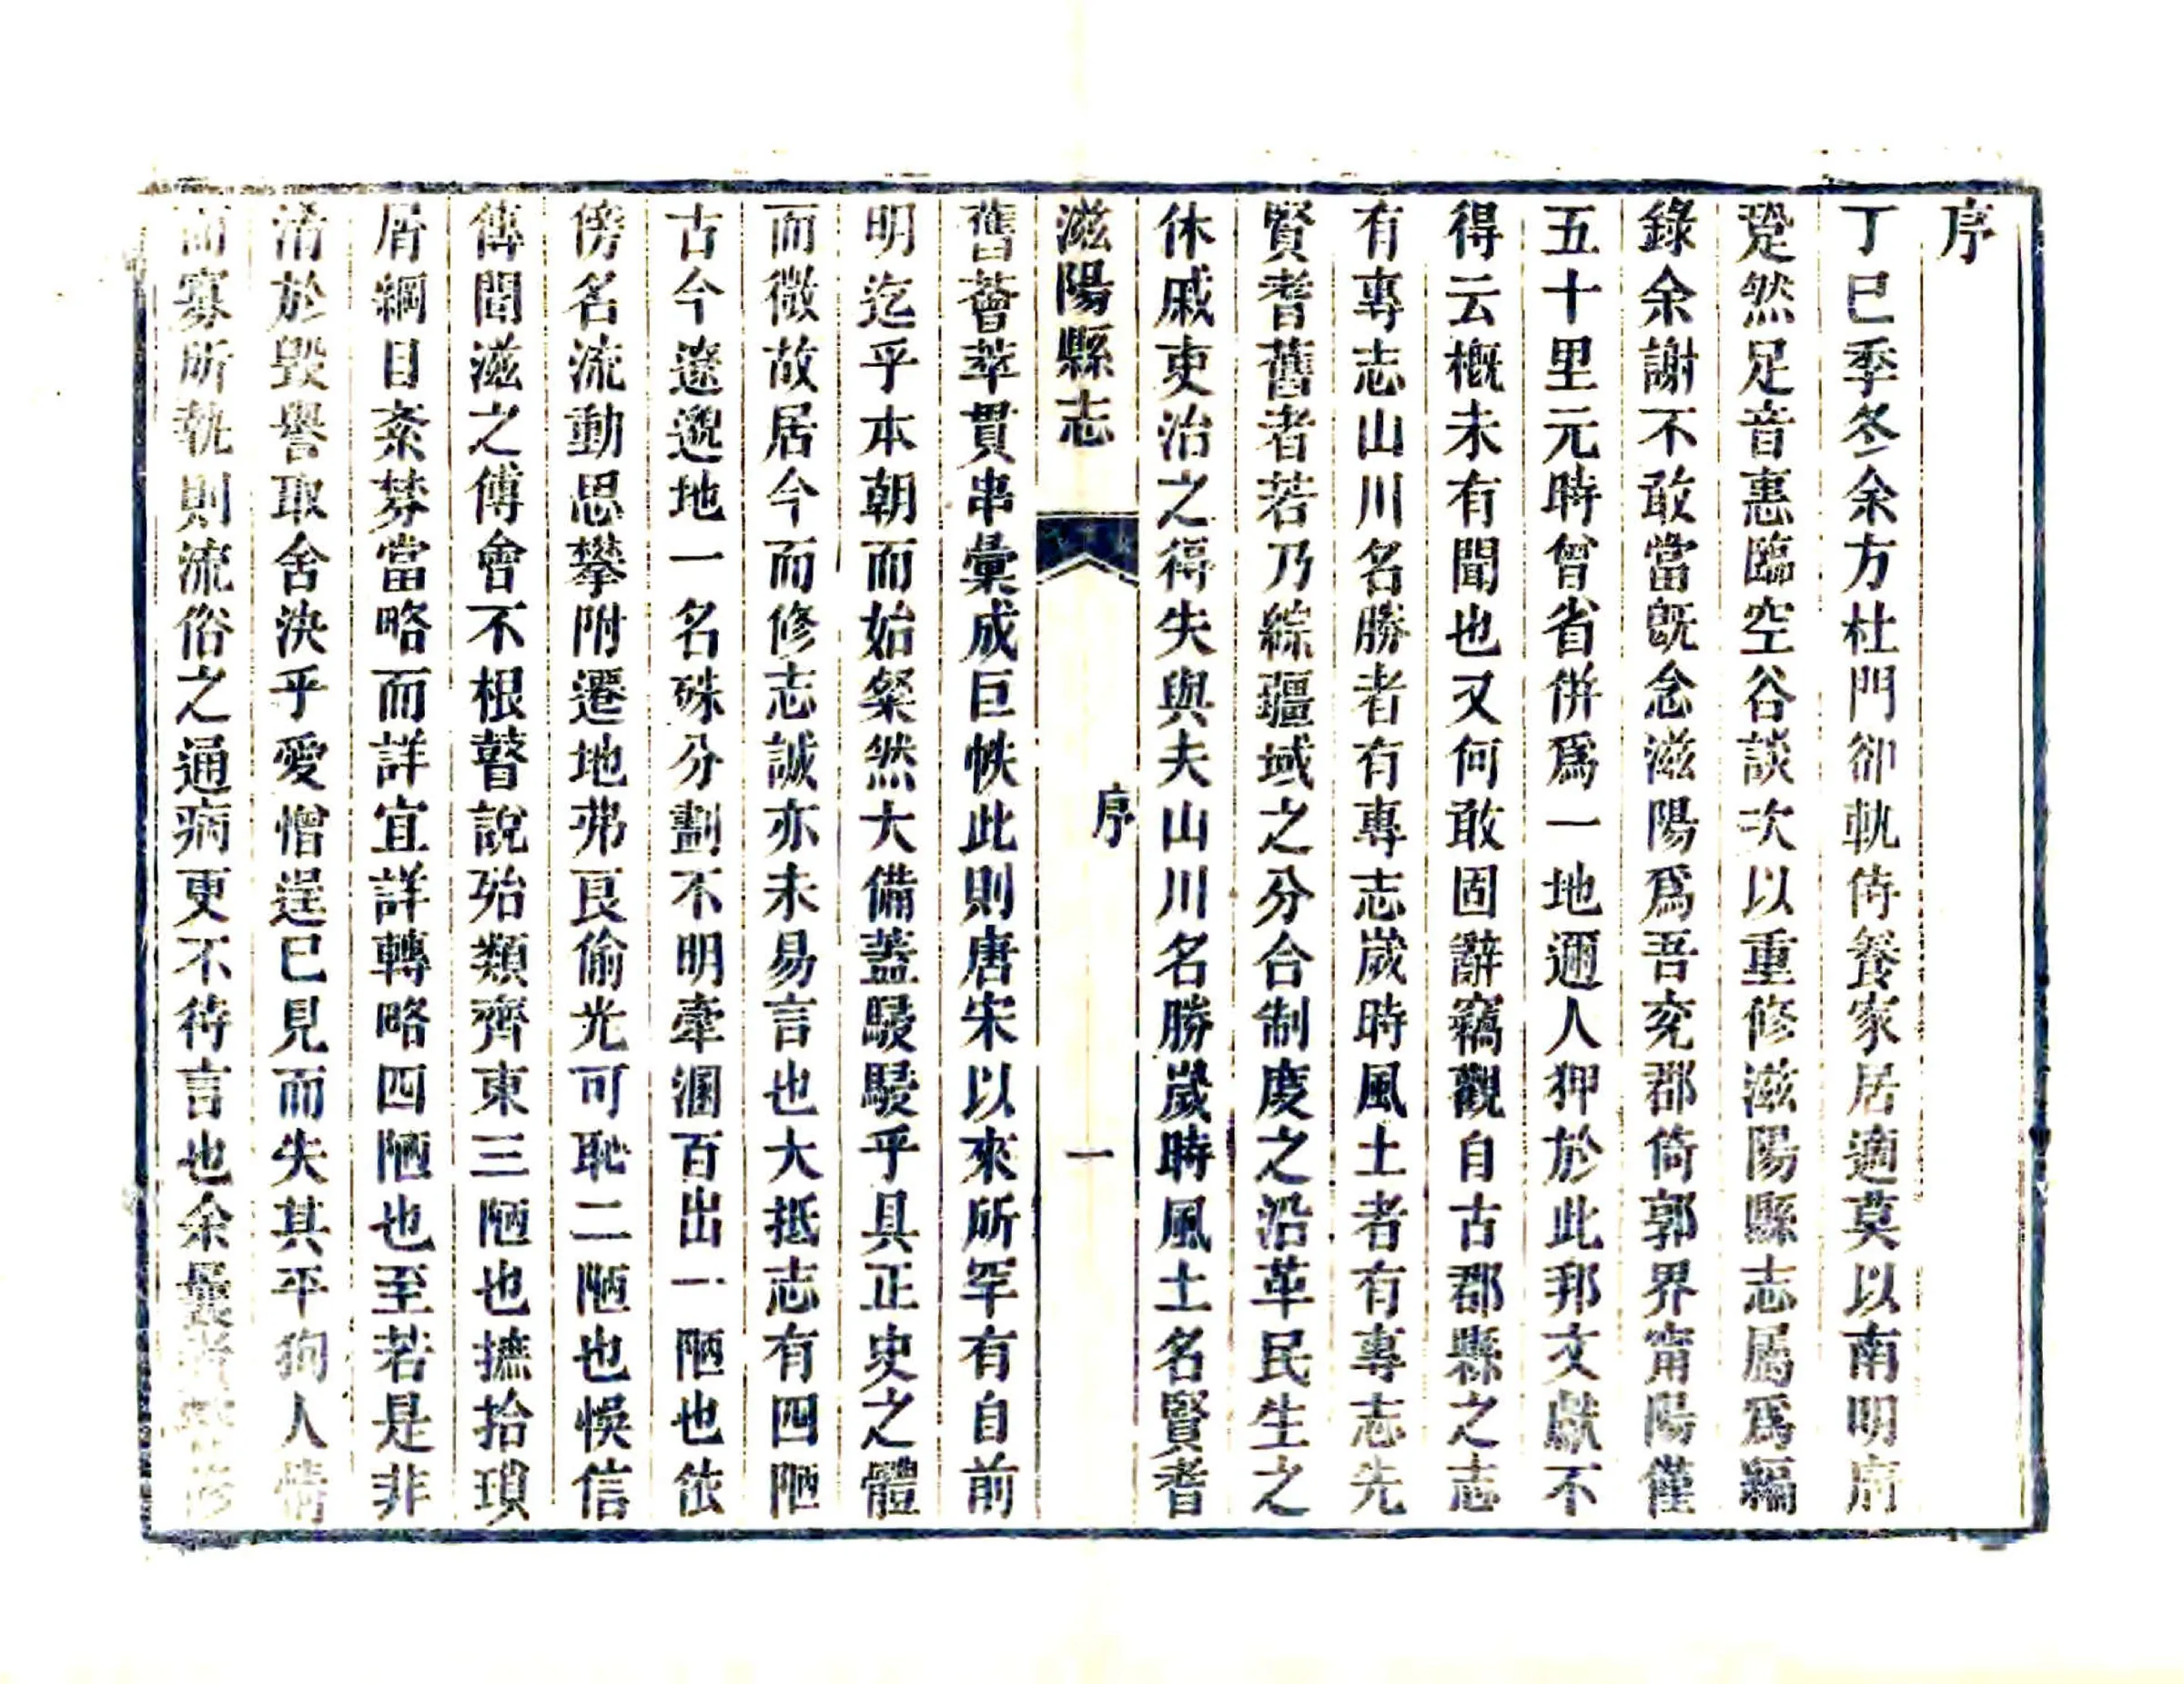 序
丁巳季冬余方杜門卻軌侍養家居適莫以南明府
跫然足音惠臨空谷談次以重修滋陽縣志屬爲編
錄余謝不敢當旣念滋陽爲吾兖郡倚郭界甯陽僅
五十里元時曾省併爲一地邇人狎於此邦文獻不
得云槪未有聞也又何敢固辭竊觀自古郡縣之志
有專志山川名勝者有專志歲時風土者有專志先
賢耆舊者若乃綜疆域之分合制度之沿革民生之
休戚吏治之得失與夫山川名勝歲時風土名賢耆
滋陽縣志 序 一
舊薈萃貫串彙成巨帙此則唐宋以來所罕有自前
明迄乎本朝而始粲然大備蓋駸駸乎具正史之體
而微故居今而修志誠亦未易言也大抵志有四陋
古今遼邈地一名殊分劃不明牽溷百出一陋也依
傍名流動思攀附遷地弗良偷光可恥二陋也悞信
傳聞滋之傅會不根瞽說殆類齊東三陋也摭拾瑣
屑綱目紊棼當略而詳宜詳轉略四陋也至若是非
淆於毀譽取舍決乎愛憎逞已見而失其平狥人情
而寡所執則流俗之通病更不待言也余曩 修